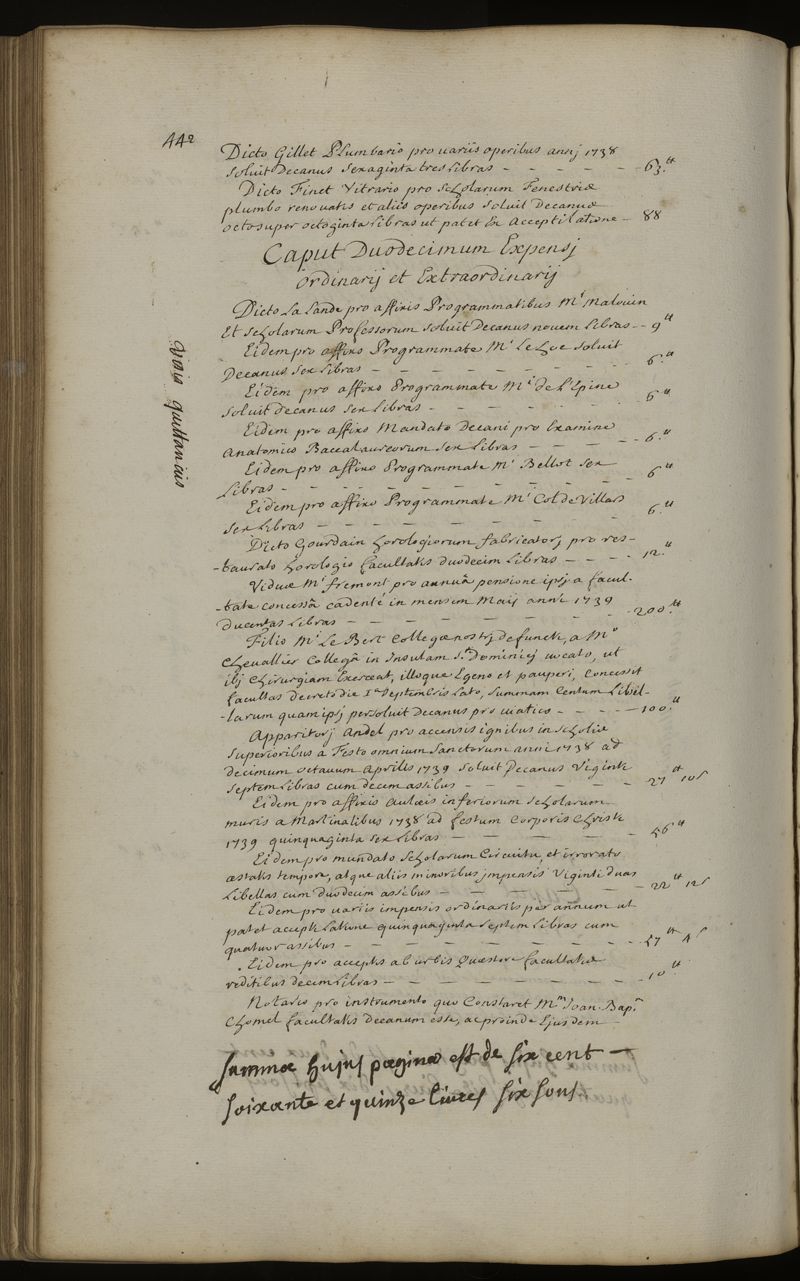 442
Dicto Gillet Plumbario pro uariis operibus annj 1738
soluit Decanus sexaginta tres Libras - - - - - 63.tt
Dicto Finet Vitrario pro scholarum Fenestris
plumbo renouatis et aliis operibus soluit Decanus
octo super octoginta Libras ut patet Ex acceptilatione - 88
Caput Duodecimum Expensj
ordinarij et Extraordinarij
Dicto La Lande pro affixis Programmatibus Mri Malouin
Et scholarum Professorum soluit Decanus nouem Libras - - 9tt
Eidem pro affixo Programmate Mri Le Hoc soluit
Decanus sex Libras - - - - - - 6.tt
Eidem pro affixo Programmate Mri de L'Epine
soluit decanus sex Libras - - - - - 6tt
Eidem pro affixo Mandato Decani pro Examine
Anatomico Baccalaureorum sex Libras - - - - 6.tt
Eidem pro affixo Programmate Mri Bellot sex
Libras - - - - - - - - 6tt
Eidem pro affixo Programmate Mri Col de Villars
sex Libras - - - - - - - 6tt
Dicto Gourdain horologiorum fabricatorj pro res-
-taurato horologio facultatis duodecim Libras - - - - 12.tt
Viduæ Mri fremont pro annuâ pensione ipsj a facul-
-tate concessâ cadente in mensem Maij anni 1739
ducentas Libras - - - - - - - 200tt
Filio Mri Le Bert Collegæ nostrj defuncti, a Mro
Chevallier Collegâ in Insulam Sti Dominicj uocato, ut
ibj Chirurgiam Exerceat, illoque Egeno et pauperi, Concessit
facultas decreto die 1a septembris Lato, summam Centum Libel-
-larum quam ipsj persoluit Decanus pro uiatico - - - - 100.tt
Apparitorj Andel pro accensis ignibus in scholis
superioribus a Festo omnium sanctorum anni 1738 ad
decimum octauum Aprilis 1739 soluit Decanus Viginti
septem Libras cum decem assibus - - - - - - 27tt 10s
Eidem pro affixis aulæis inferiorum scholarum
muris a Martinalibus 1738 ad festum Corporis Christi
1739 quinquaginta sex Libras - - - - - 56tt
Eidem pro mundato scholarum Circuitu, et irrorato
æstatis tempore, atque aliis minoribus impensis Viginti duas
Libellas cum duodecim assibus - - - - - - 22tt 12s
Eidem pro uariis impensis ordinariis per annum ut
patet acceptilatione quinquaginta septem Libras cum
quatuor assibus - - - - - - - - 57tt 4s
Eidem pro acceptis ab urbis Quæstore facultatis
reditibus decem Libras - - - - - - - 10tt
Notario pro instrumento quo Constaret Mrum Ioan. Bap.
Chomel facultatis decanum esse, ac proinde Ejusdem
summa hujus pæginæ est de six cent
soixante et quinze livres six sous.
Visis quittanciis